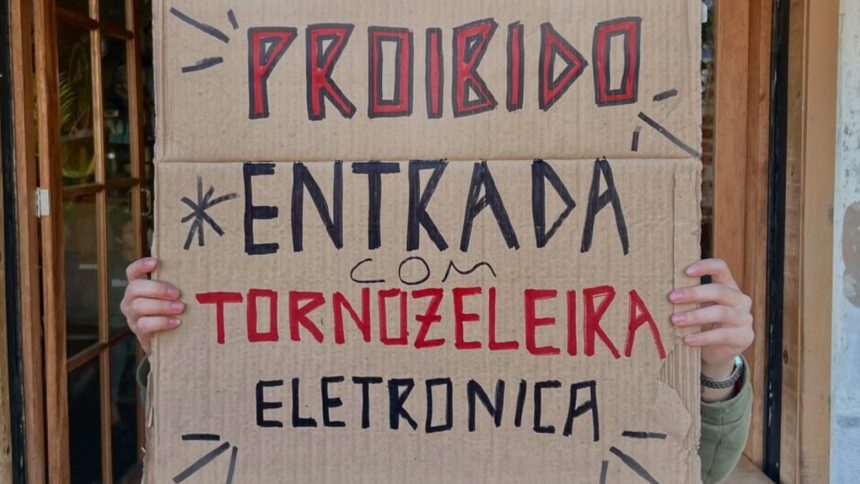 PROIBIDO
*ENTRADA
COM
TORNOZELEIRA
ELETRONICA